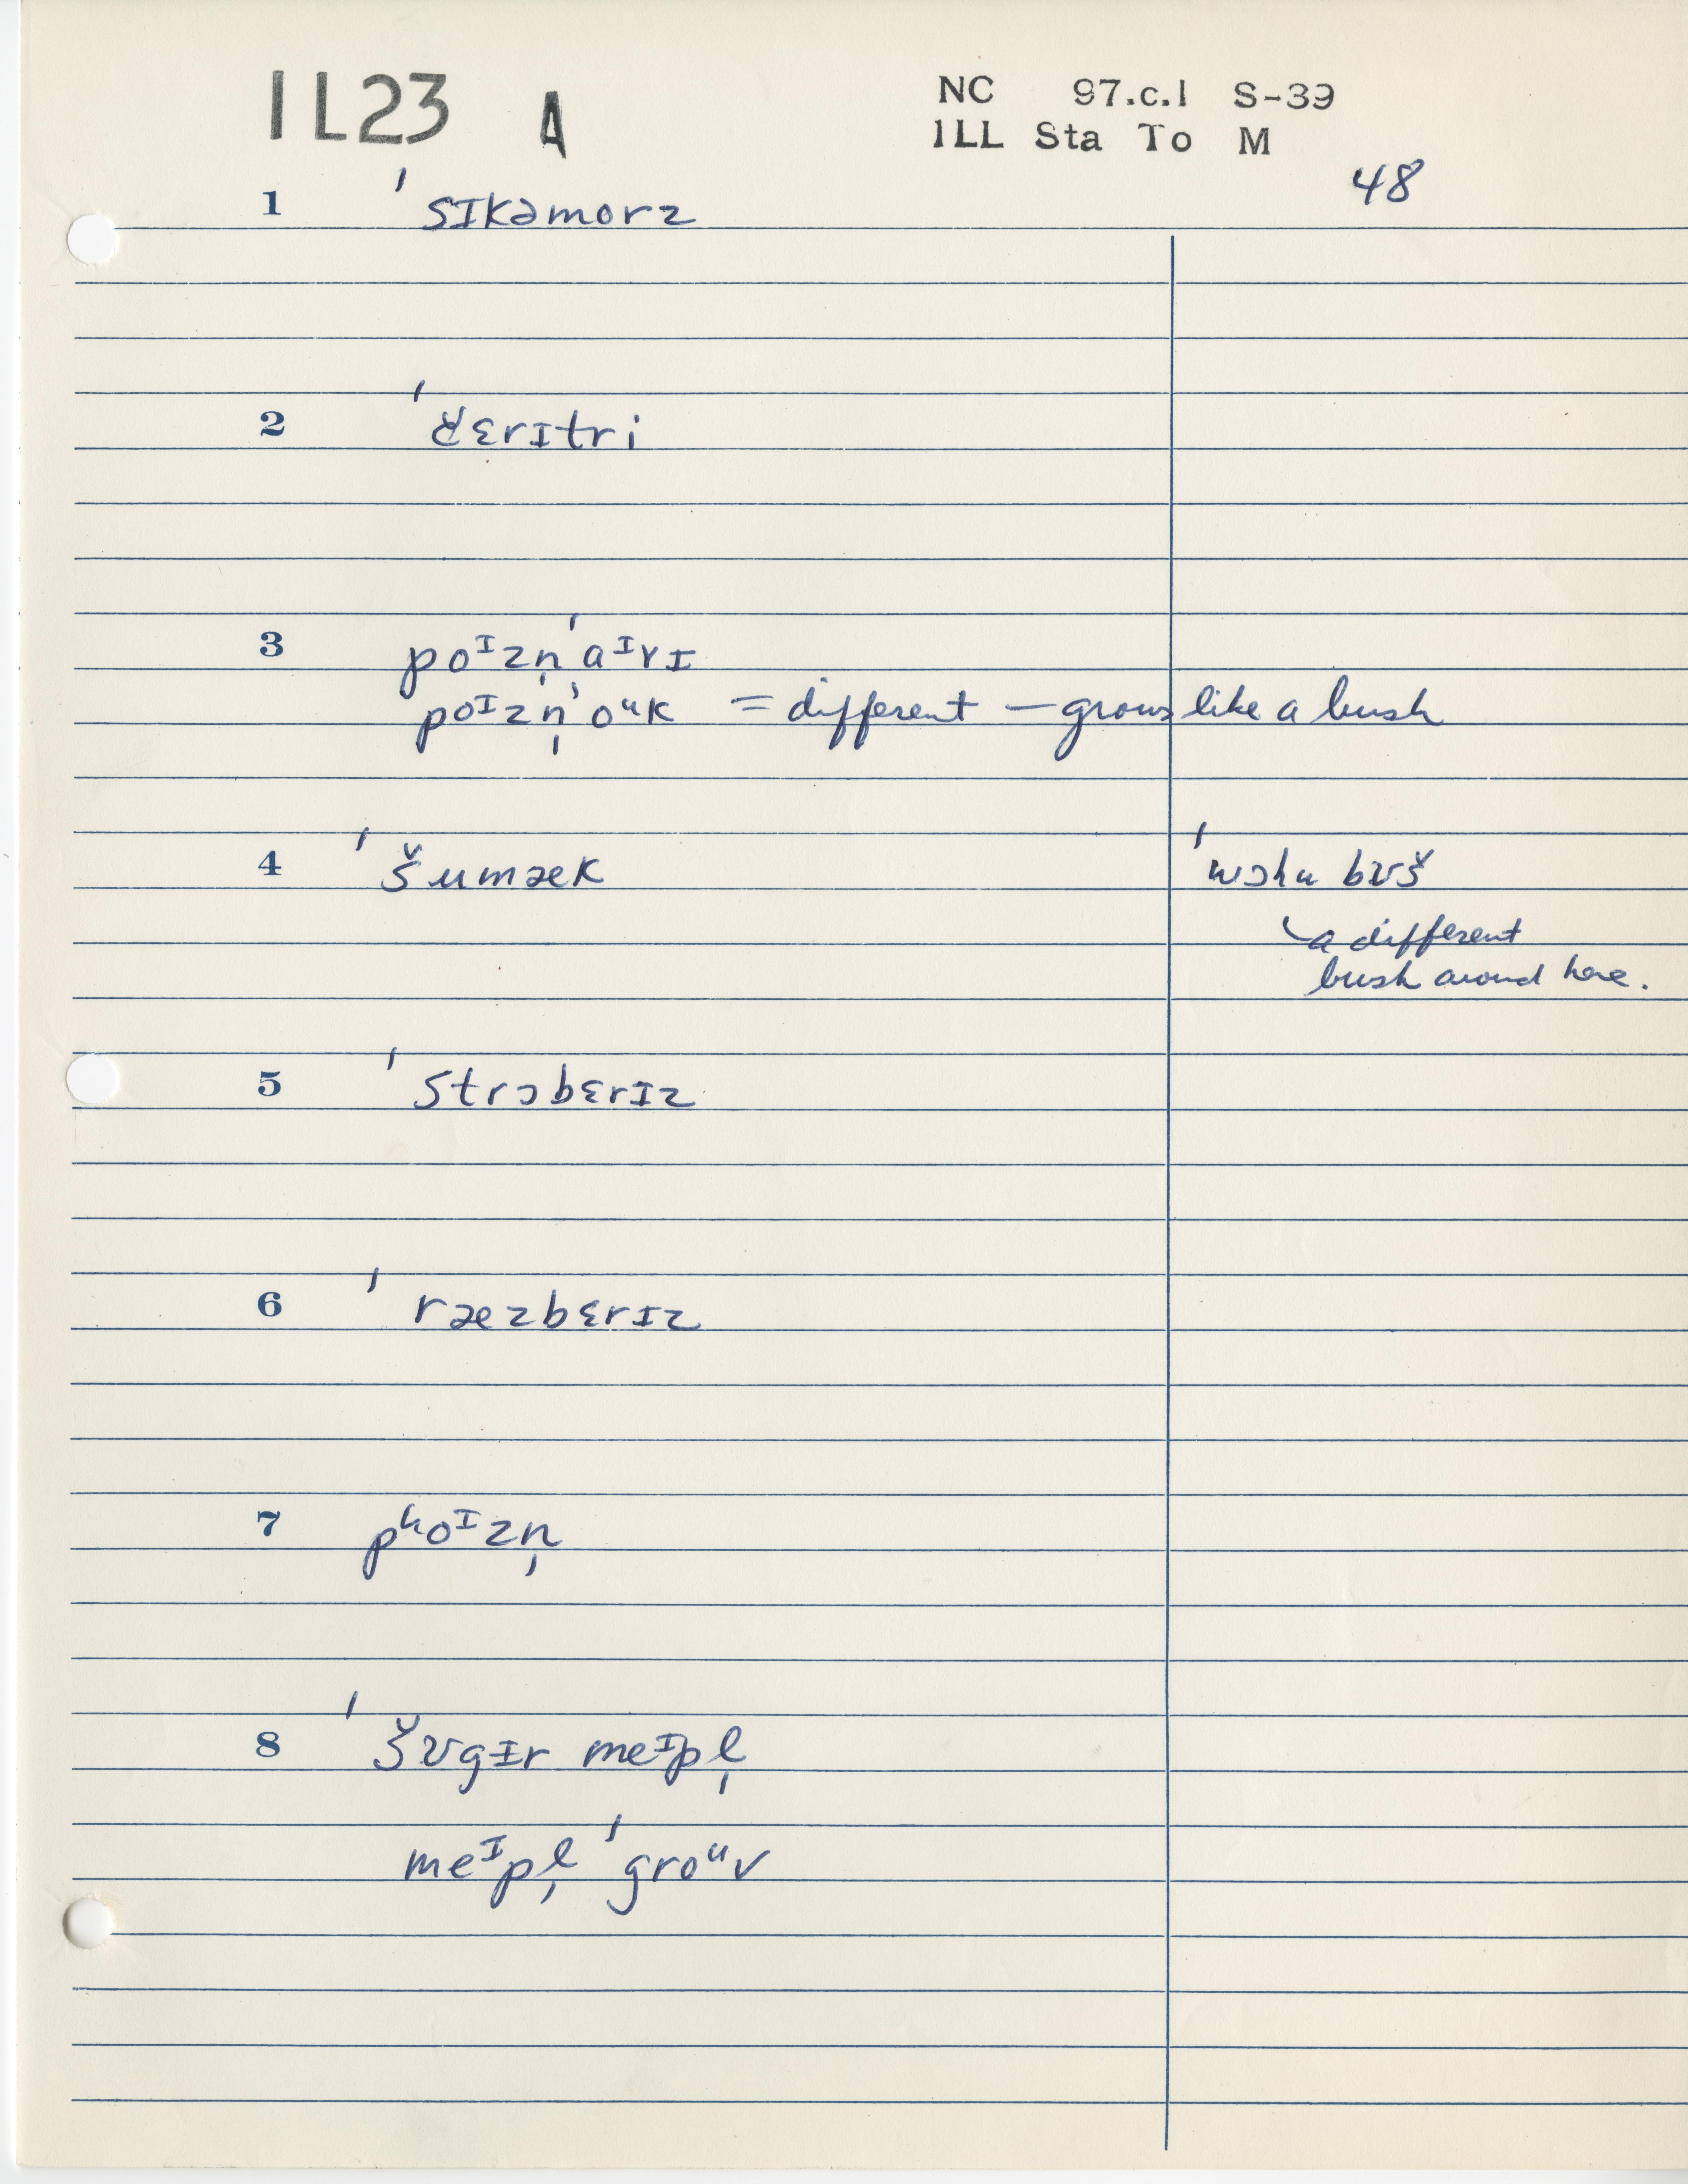 IL23 A
NC 97.c.1 S-39
ILL Sta To M
48
1 ˈsɪkəmorz
2 ˈčɛrɪtri
3 poᶦzn̩ˈaᶦvɪ
poᶦzn̩ˈoᵘk = different – grows like a bush
4 ˈšumæk ˈwɔhu bʊš
a different
bush around here.
5 ˈstrɔbɛrɪz
6 ˈræzbɛrɪz
7 pʰoᶦzn̩
8 ˈšʊgɪr meᶦpl̩
meᶦpl̩ ˈgroᵘv